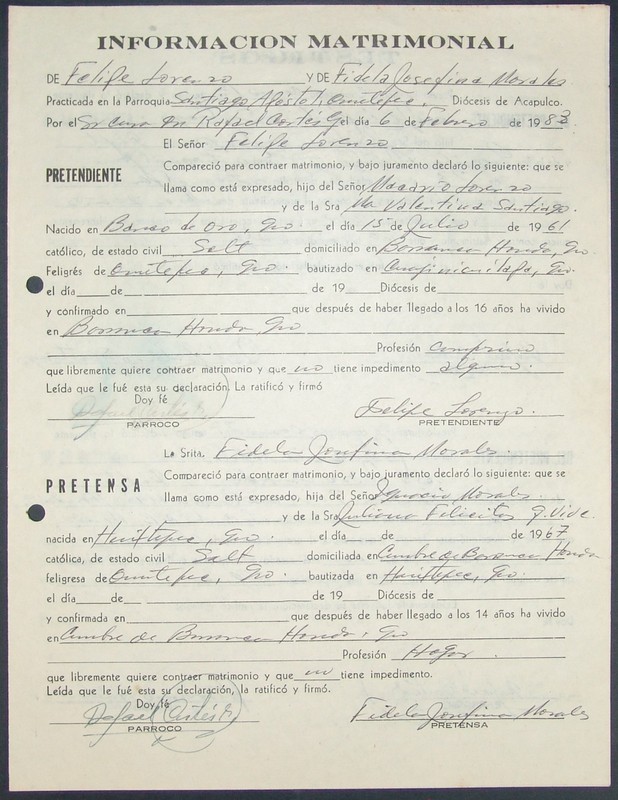 INFORMACION MATRIMONIAL
DE Felipe Lorenzo Y DE Fidela Josefina Morales
Practicada en la Parroquia Santiago Apóstol, Ometepec, Diócesis de Acapulco.
Por el Sr cura Dn Rafael Cortés G el día 6 de Febrero de 1983
El Señor Felipe Lorenzo
PRETENDIENTE
Compareció para contraer matrimonio, y bajo juramento declaró lo siguiente: que se
llama como está expresado, hijo del Señor Macario Lorenzo
y de la Sra Ma Valentina Santiago.
Nacido en Banco de Oro, Gro el día 15 de Julio de 1961
católico, de estado civil Solt domiciliado en Barranca Honda, Gro.
Feligrés de Ometepec, Gro. bautizado en Cuajinicuilapa, Gro.
el día de de 19 Diócesis de
y confirmado en que después de haber llegado a los 16 años ha vivido
en Barranca Honda, Gro
Profesión Campesino
que libremente quiere contraer matrimonio y que no tiene impedimento alguno
Leída que le fué esta su declaración. La ratificó y firmó
Doy fé
Rafael Cortés G Felipe Lorenzo.
PARROCO PRETENDIENTE
La Srita. Fidela Josefina Morales
Compareció para contraer matrimonio, y bajo juramento declaró lo siguiente: que se
PRETENSA
llama como está expresado, hija del Señor Ignacio Morales
y de la Sra Juliana Felicitas q. vive
nacida en Huixtepec, Gro. el día de de 1967
católica, de estado civil Solt domiciliada en Cumbre de Barranca Honda
feligresa de Ometepec, Gro. bautizada en Huixtepec, Gro.
el día de de 19 Diócesis de
y confirmada en que después de haber llegado a los 14 años ha vivido
en Cumbre de Barranca Honda, Gro
Profesión Hogar
que libremente quiere contraer matrimonio y que no tiene impedimento.
Leída que le fué esta su declaración, la ratificó y firmó.
Doy fé
Rafael Cortés G Fidela Josefina Morales
PARROCO PRETENSA